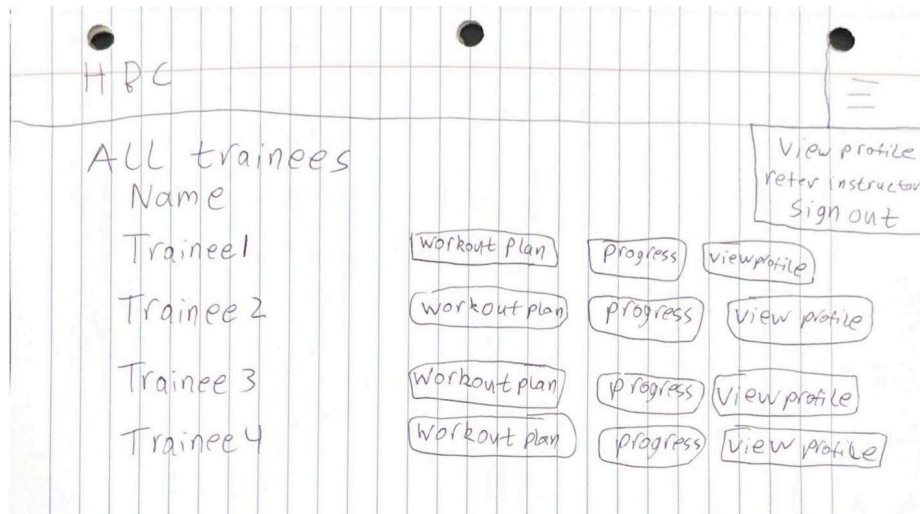 HBC
ALL trainees
View profile
refer instructor
Sign out
Name
Trainee1 workout plan progress view profile
Trainee 2 workout plan progress view profile
Trainee 3 workout plan progress view profile
Trainee 4 workout plan progress view profile